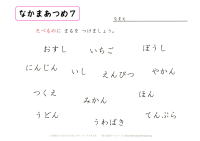 なかまあつめ７
なまえ
たべものに まるを つけましょう。
おすし いちご ぼうし
にんじん いし えんぴつ やかん
つくえ みかん ほん
うどん うわばき てんぷら